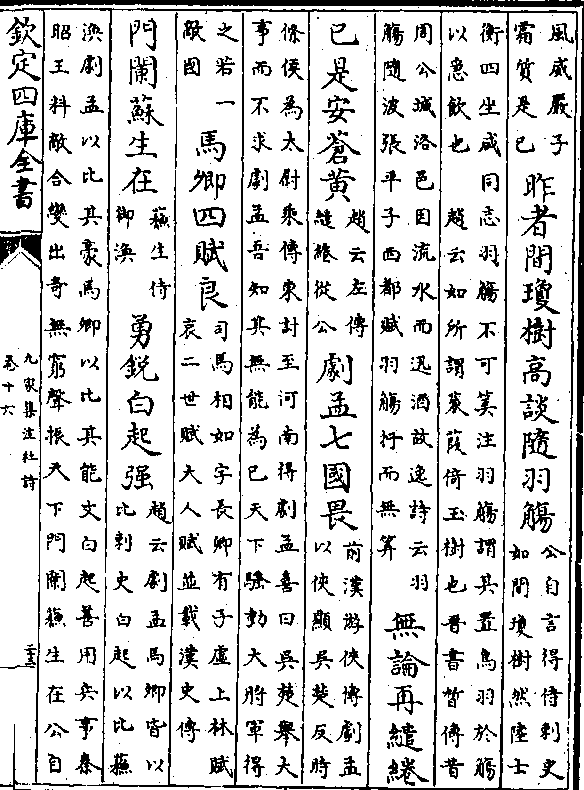 風威嚴子
霜質是已
昨者間瓊樹高談隨羽觴
公自言得侍刺史
如間瓊樹然陸士
衡四坐咸同志羽觴不可筭注羽觴謂其置鳥羽於觴
以急飲也　趙云如所謂蒹葭倚玉樹也晉書皙傳昔
周公城洛邑因流水而迅酒故逸詩云羽
觴隨波張平子西都賦羽觴行而無筭
無論再繾綣
已是安蒼黄
趙云左傳
繾綣從公
劇孟七國畏
前漢游俠傳劇孟
以俠顯吳楚反時
條侯為太尉乘傳東討至河南得劇孟喜曰吳楚舉大
事而不求劇孟吾知其無能為已天下騷動大將軍得
之若一
敵國
馬卿四賦良
司馬相如字長卿有子虛上林賦
哀二世賦大人賦並載漢史傳
門闌蘇生在
蘇生侍
御渙
勇銳白起强
趙云劇孟馬卿皆以
比刺史白起以比蘇
渙劇孟以比其豪馬卿以比其能文白起善用兵事秦
昭王料敵合變出奇無窮聲振天下門闌蘇生在公自
欽定四庫全書
九家集注杜詩
卷十六
二十三